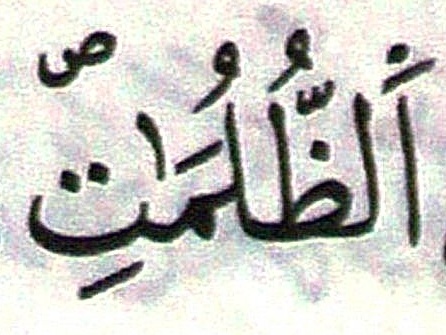 اَلظُّلُمَٰتِ ص